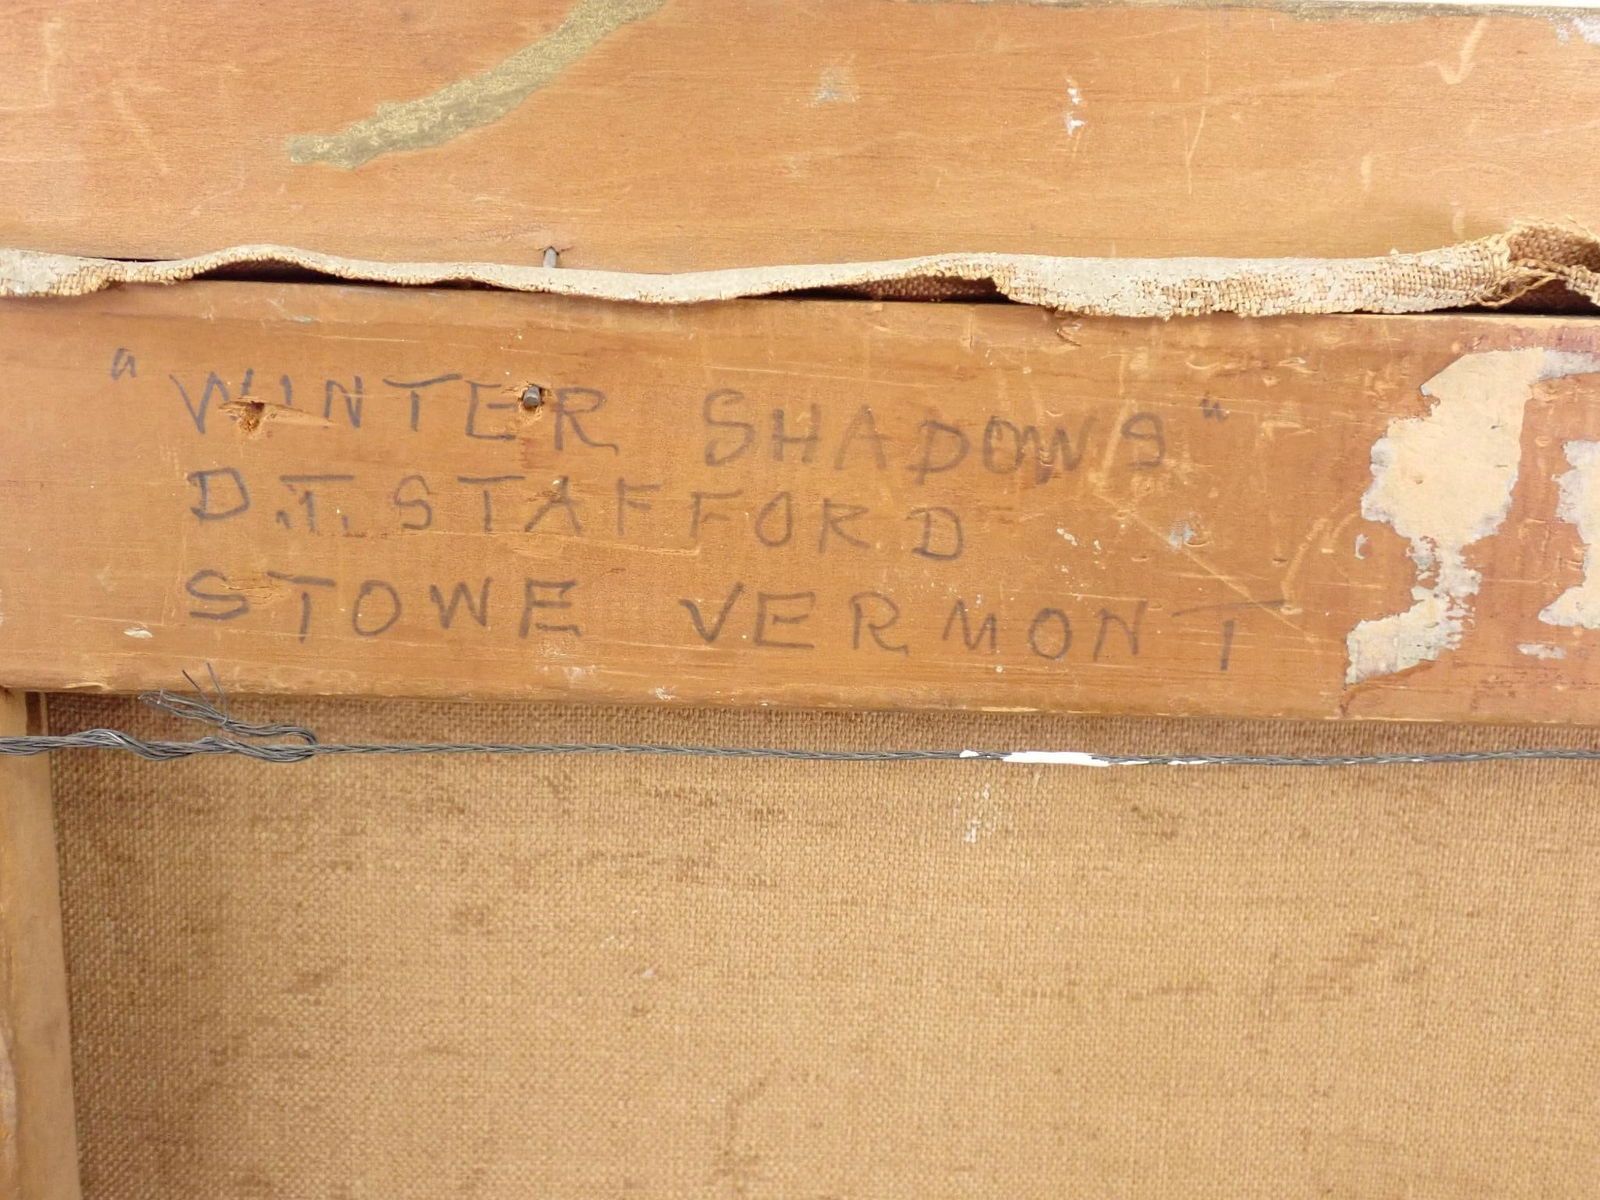 "WINTER SHADOWS"
D.T. STAFFORD
STOWE VERMONT